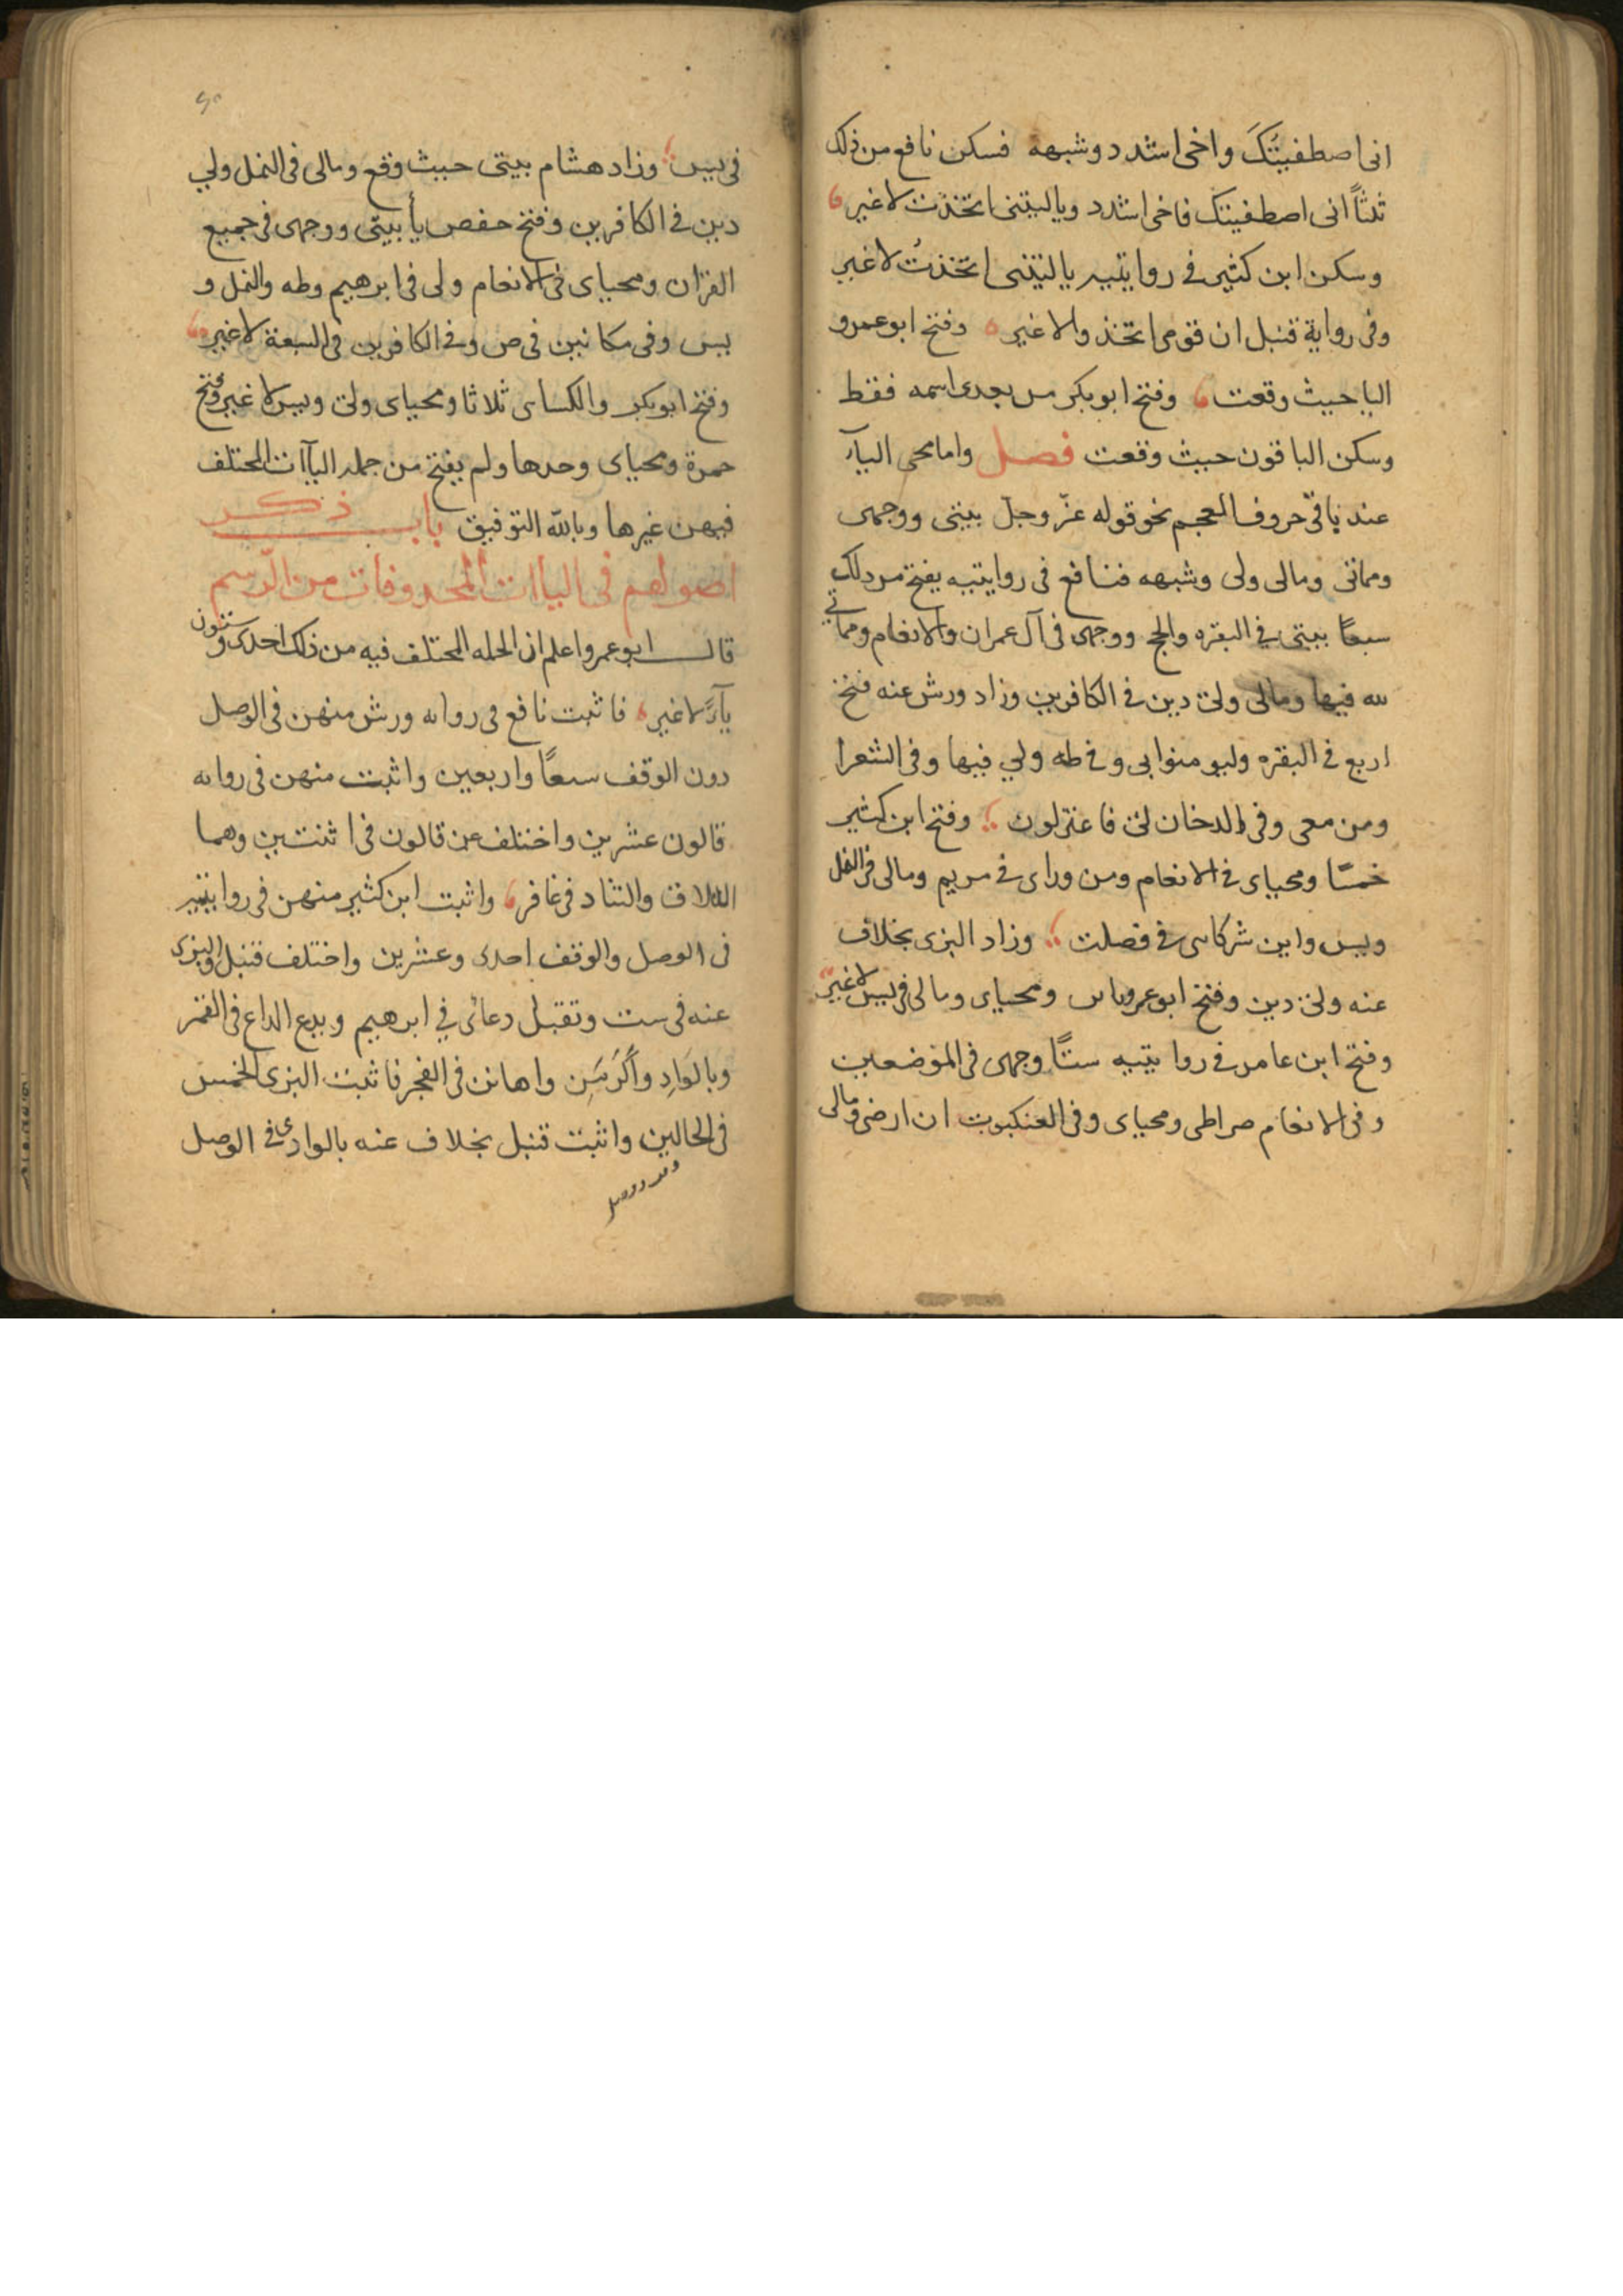 انى اصطفيتُكَ واخى اشدد وشبهه فسكن نافع من ذلك
ثلثاً انى اصطفيتك فاخى اشدد وياليتنى اتخذت لاغير
وسكن ابن كثير فى روايتيه ياليتنى اتخذتُ لاغير
وفى رواية قنبل ان قومى اتخذوا لاغير وفتح ابوعمرو
اليا حيث وقعت وفتح ابوبكر من بعدى اسمه فقط
وسكن الباقون حيث وقعت فصل واما محى اليآء
عند باقى حروف المعجم نحو قوله عزّ وجلّ بيتى ووجهى
ومماتى ومالى ولى وشبهه فنافع فى روايتيه يفتح من ذلك
سبعاً بيتى فى البقره والحج ووجهى فى آل عمران والانعام ومماتى
لله فيها ومالى ولى دين فى الكافرين وزاد ورش عنه فتح
اربع فى البقره وليومنوا بى وفى طه ولى فيها وفى الشعرا
ومن معى وفى الدخان لى فاعتزلون وفتح ابن كثير
خمسًا ومحياى فى الانعام ومن وراى فى مريم ومالى فى النمل
ويس واين شركاى فى فصلت وزاد البزى بخلاف
عنه ولى دين وفتح ابو عمرو ومحياى ومالى فى يس لاغير
وفتح ابن عامر فى روايتيه ستًا وجهى فى الموضعين
وفى الانعام صراطى ومحياى وفى العنكبوت ان ارضى ومالى
فى يس وزاد هشام بيتى حيث وقع ومالى فى النمل ولى
دين فى الكافرين وفتح حفص يأ بيتى ووجهى فى جميع
القران ومحياى فى الانعام ولى فى ابرهيم وطه والنمل و
يس وفى مكانين فى ص وفى الكافرين فى السبعة لاغير
وفتح ابوبكر والكساى ثلاثا ومحياى ولى ويس لاغير وفتح
حمزة ومحياى وحدها ولم يفتح من جمله اليآات المختلف
فيهن غيرها وبالله التوفيق باب ذكر
اصولهم فى اليأات المحذوفات من الرّسم
قال ابو عمرو اعلم ان الجمله المختلف فيه من ذلك احدى وستون
يآءً لاغير فاثبت نافع فى روايه ورش منهن فى الوصل
دون الوقف سبعاً واربعين واثبت منهن فى روايه
قالون عشرين واختلف عن قالون فى اثنتين وهما
التلاق والتناد فى غافر واثبت ابن كثير منهن فى روايتيه
فى الوصل والوقف احدى وعشرين واختلف قنبل والبزى
عنه فى ست وتقبل دعائى فى ابرهيم ويدع الداع فى القمر
وبالوَادِ واَكرَمَنِ واهانن فى الفجر فاثبت البزى الخمس
فى الحالين واثبت قنبل بخلاف عنه بالوادى فى الوصل